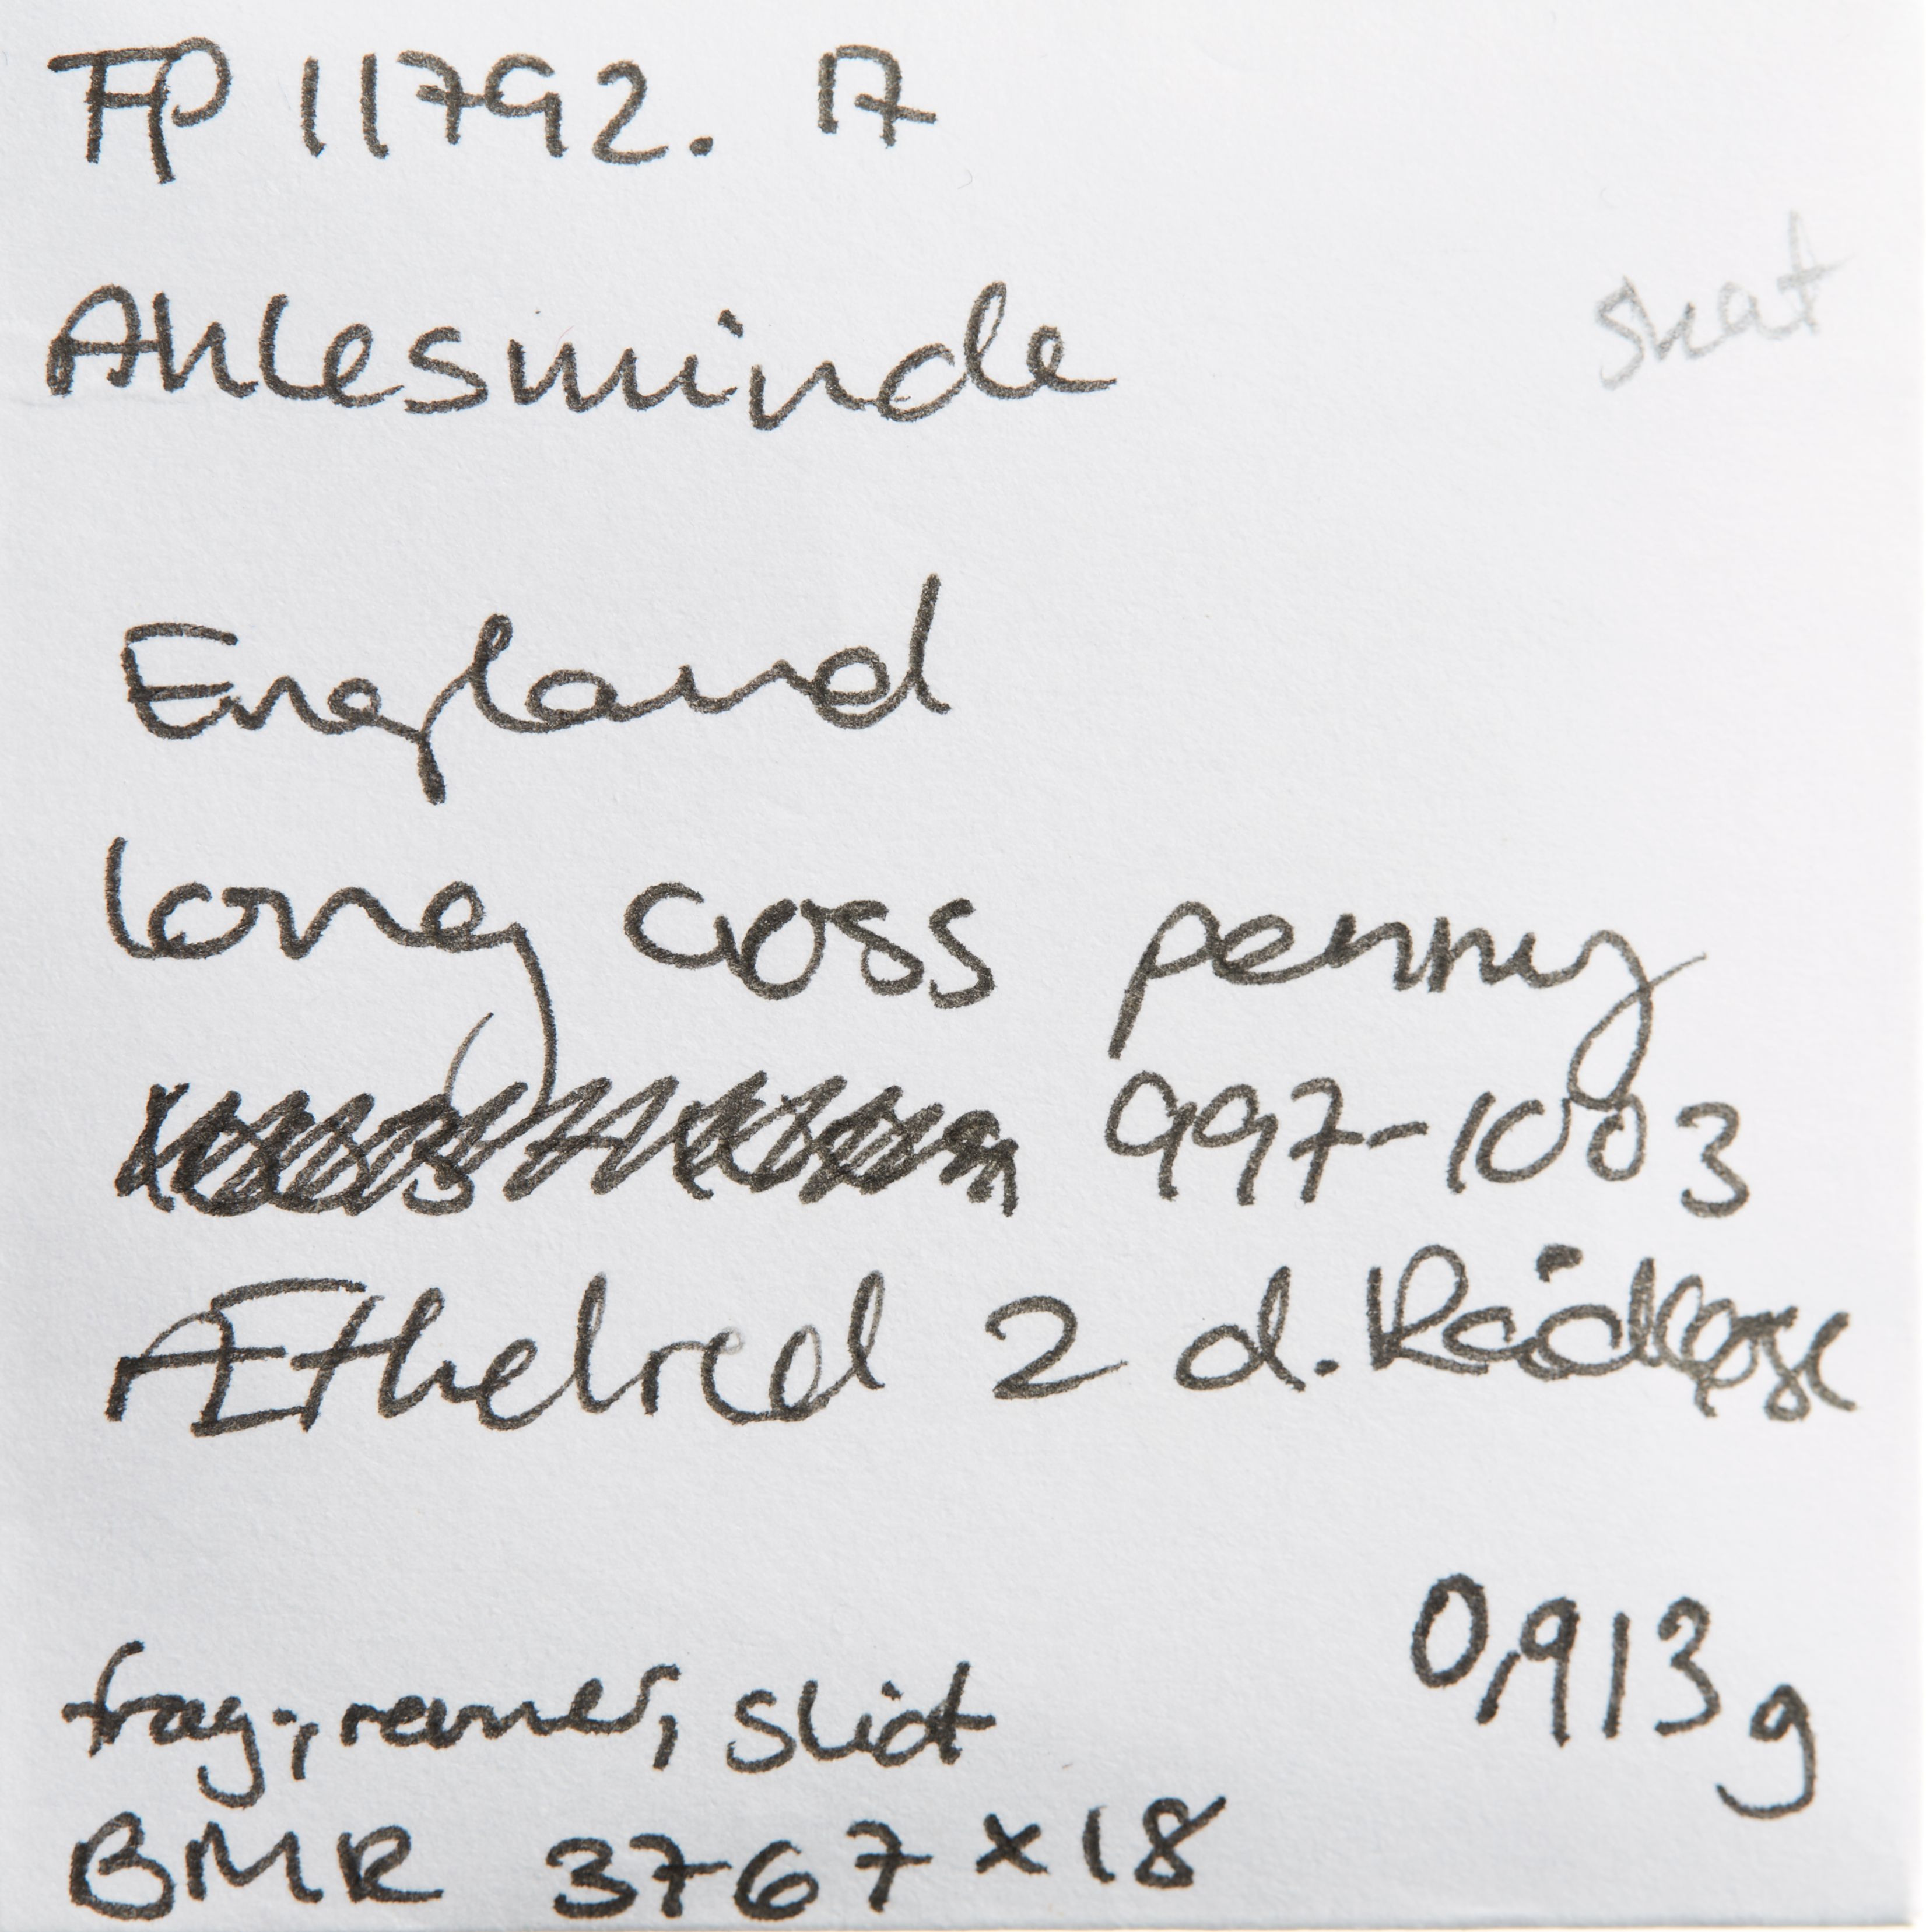 FP 11792. 17
skat
Ahlesminde
England
long cross penny
997-1003
Æthelred 2 d. Rådløse
0,913 g
frag., revner, slidt
BMR 3767 x 18